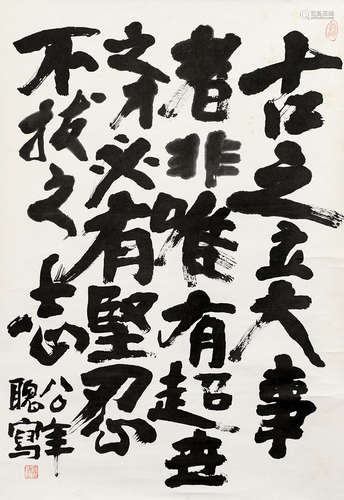 古之立大事
者非唯有超世
之才必有堅忍
不拔之志
年
寫